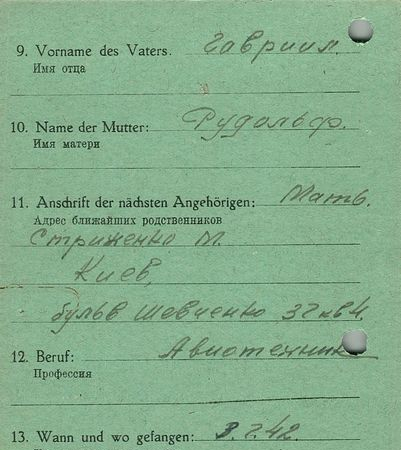 9. Vorname des Vaters. Гавриил.
Имя отца
10. Name der Mutter: Рудольф.
Имя матери
11. Anschrift der nächsten Angehörigen: Мать.
Адрес ближайших родственников
Стриженко М.
Киев,
бульв Шевченко 32 кв 4.
12. Beruf: Авиотехник
Профессия
13. Wann und wo gefangen: 42.